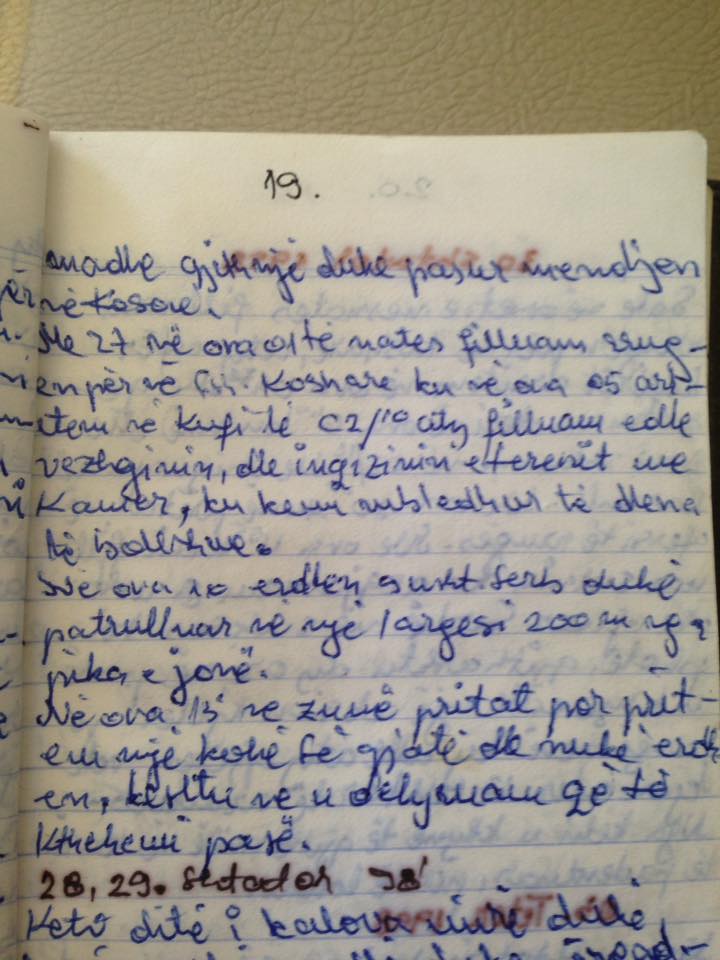 19.
madhe gjith një duke pasur mendjen
në Kosovë.
Me 27 në ora 01 të nates filluam rrug-
en për në Koshare ku në ora 05 arri-
tem në Kufi të C2/10 filluam edhe
vezhgimin, dhe inqizimin e terenit me
Kamer, ku kemi mbledhur të dhena
të
Në ora 10 erdhën 9 usht. Serb dukë
patrulluar në një largesi 200 m nga
pika e jonë.
Në ora 15 ne zumë pritat por prit-
em një kohë të gjatë dhe nukë erdh
en, kështu ne u detyruam që të
Kthehemi pasë.
28, 29. Shtator 98'
Keto ditë i kalova duke